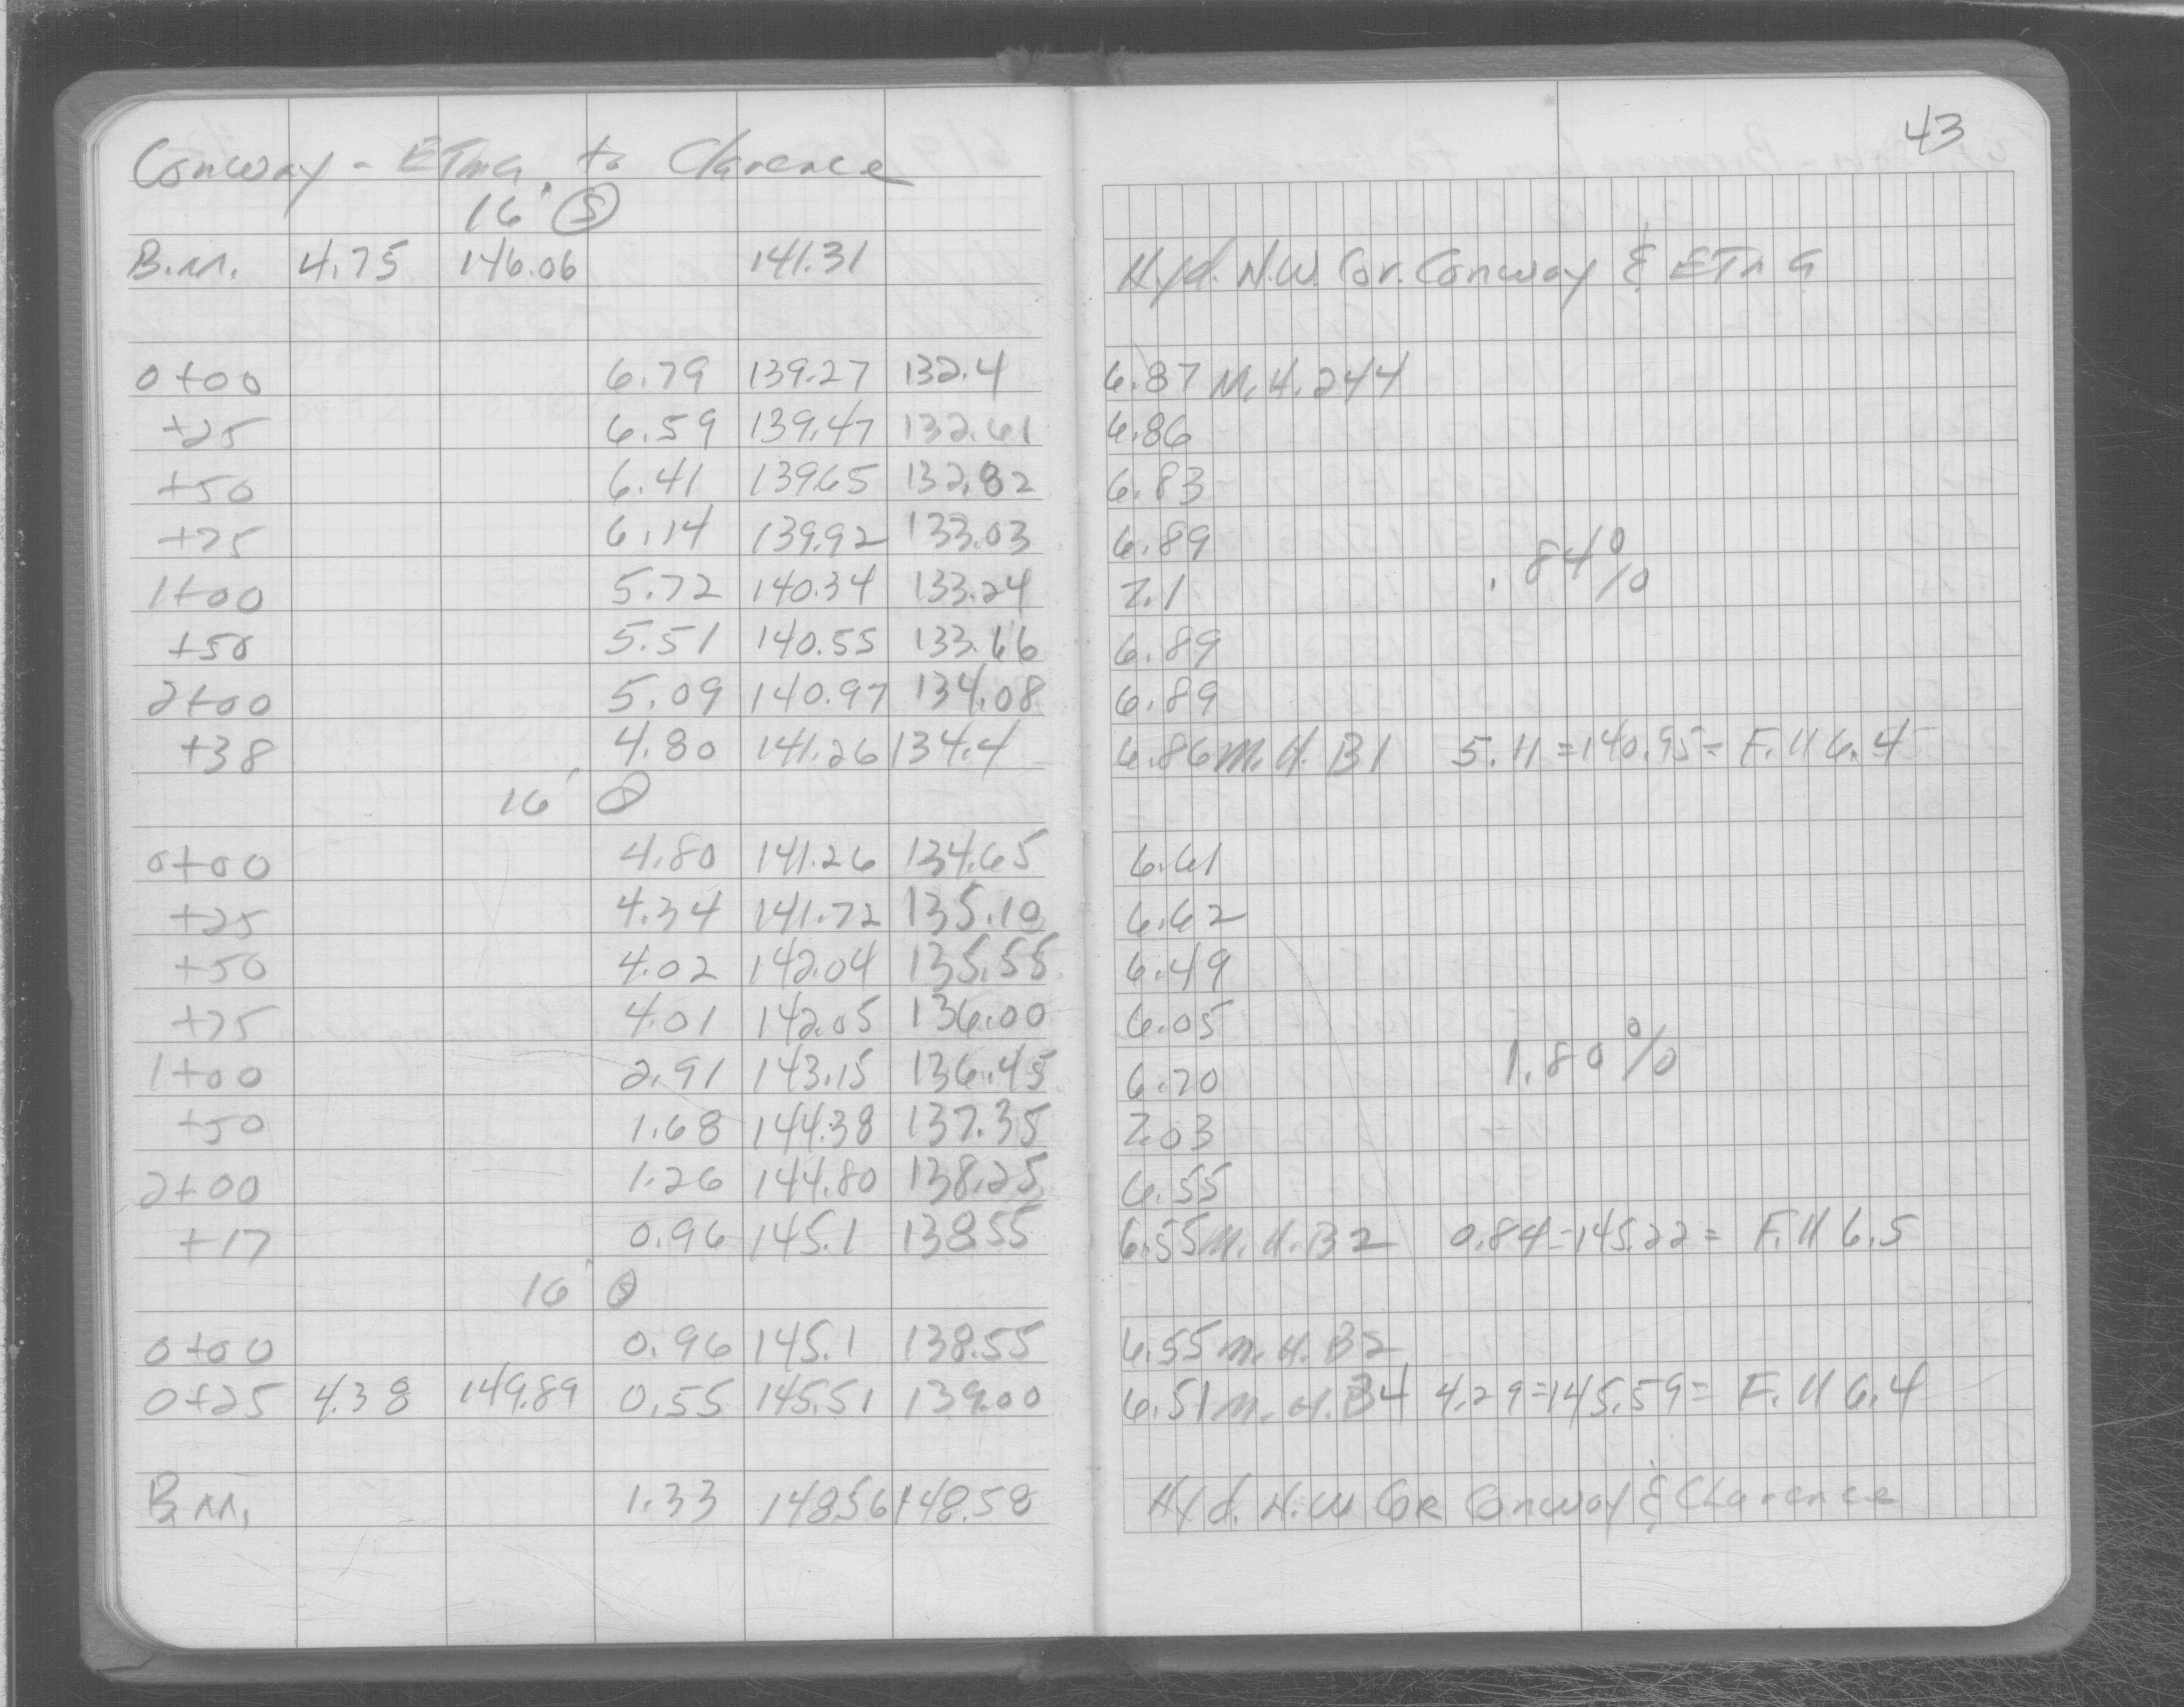 43
Conway - ETna. to Clarence
16' Ⓢ
B.M. 4.75 146.06 141.31 Hyd. N.W. Cor. Conway & ETnA
0+00 6.79 139.27 132.4 6.87 M.H. 244
+25 6.59 139.47 132.61 6.86
+50 6.41 139.65 132.82 6.83
+75 6.14 139.92 133.03 6.89 .84%
1+00 5.72 140.34 133.24 7.1
+50 5.51 140.55 133.66 6.89
2+00 5.09 140.97 134.08 6.89
+38 4.80 141.26 134.4 6.86 M.H. B1 5.11 = 140.95 = F.ll 6.4
16'
0+00 4.80 141.26 134.65 6.61
+25 4.34 141.72 135.10 6.62
+50 4.02 142.04 135.55 6.49
+75 4.01 142.05 136.00 6.05
1+00 2.91 143.15 136.45 6.70 1.80%
+50 1.68 144.38 137.35 7.03
2+00 1.26 144.80 138.25 6.55
+17 0.96 145.1 138.55 6.55 M.H. B2 0.84 = 145.22 = F.ll 6.5
16'
0+00 0.96 145.1 138.55 6.55 M.H. B2
0+25 4.38 149.89 0.55 145.51 139.00 6.51 M.H. B4 4.29 = 145.59 = F.ll 6.4
B.M. 1.33 148.56 148.58 Hyd. N.W Cor Conway & Clarence